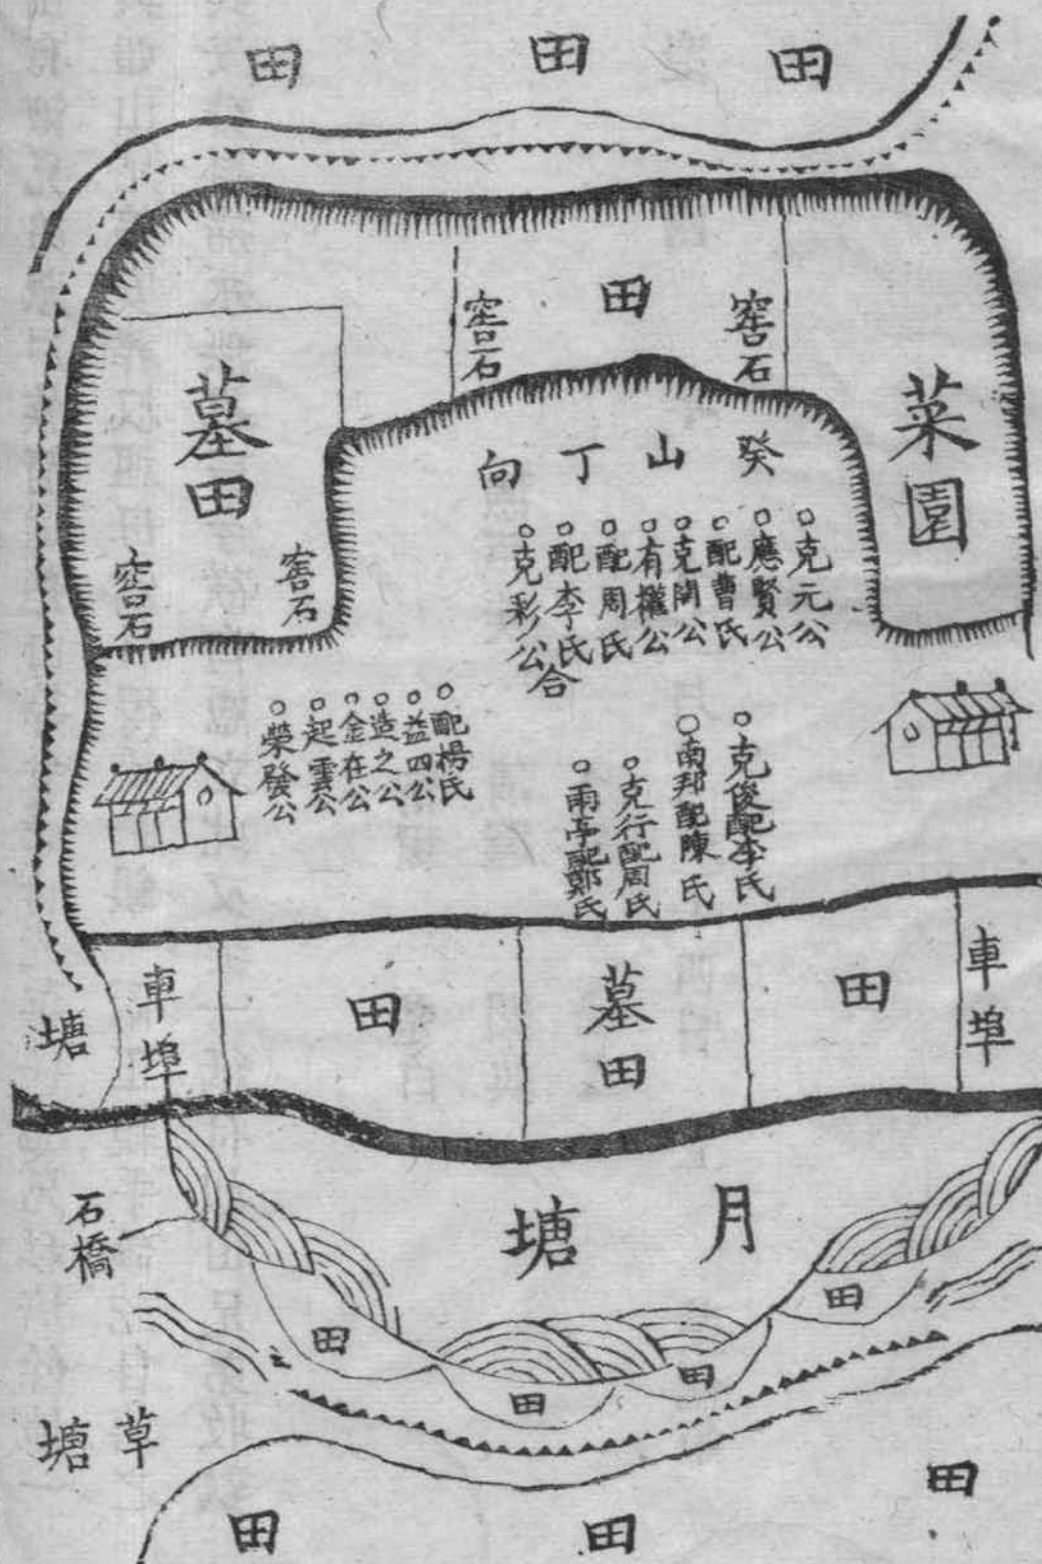 田
田
田
田
窖石
窖石
菜園
墓田
窖石
窖石
癸山丁向
克元公
應賢公
配曹氏
克開公
有權公
配周氏
配李氏合
克彩公
配楊氏
益四公
造之公
金在公
起雲公
榮發公
克俊配李氏
南邦配陳氏
克行配周氏
雨亭配鄭氏
車埠
田
墓田
田
車埠
塘
月塘
石橋
田
田
田
田
草塘
田
田
田